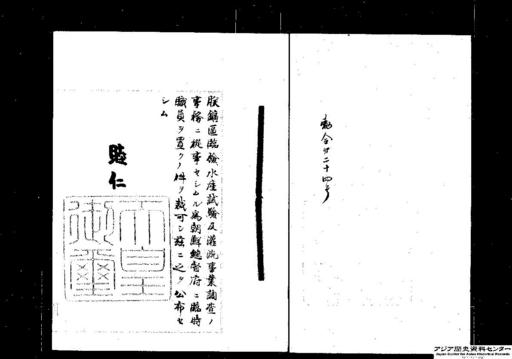 勅令第二十四号
朕鎮區臨検水産試驗及灌漑事業調査ノ
事務ニ從事セシムル為朝鮮總督府ニ臨時
職員ヲ置クノ件ヲ裁可シ茲ニ之ヲ公布セ
シム
睦仁
天皇御璽
アジア歴史資料センター
Japan Center for Asian Historical Records